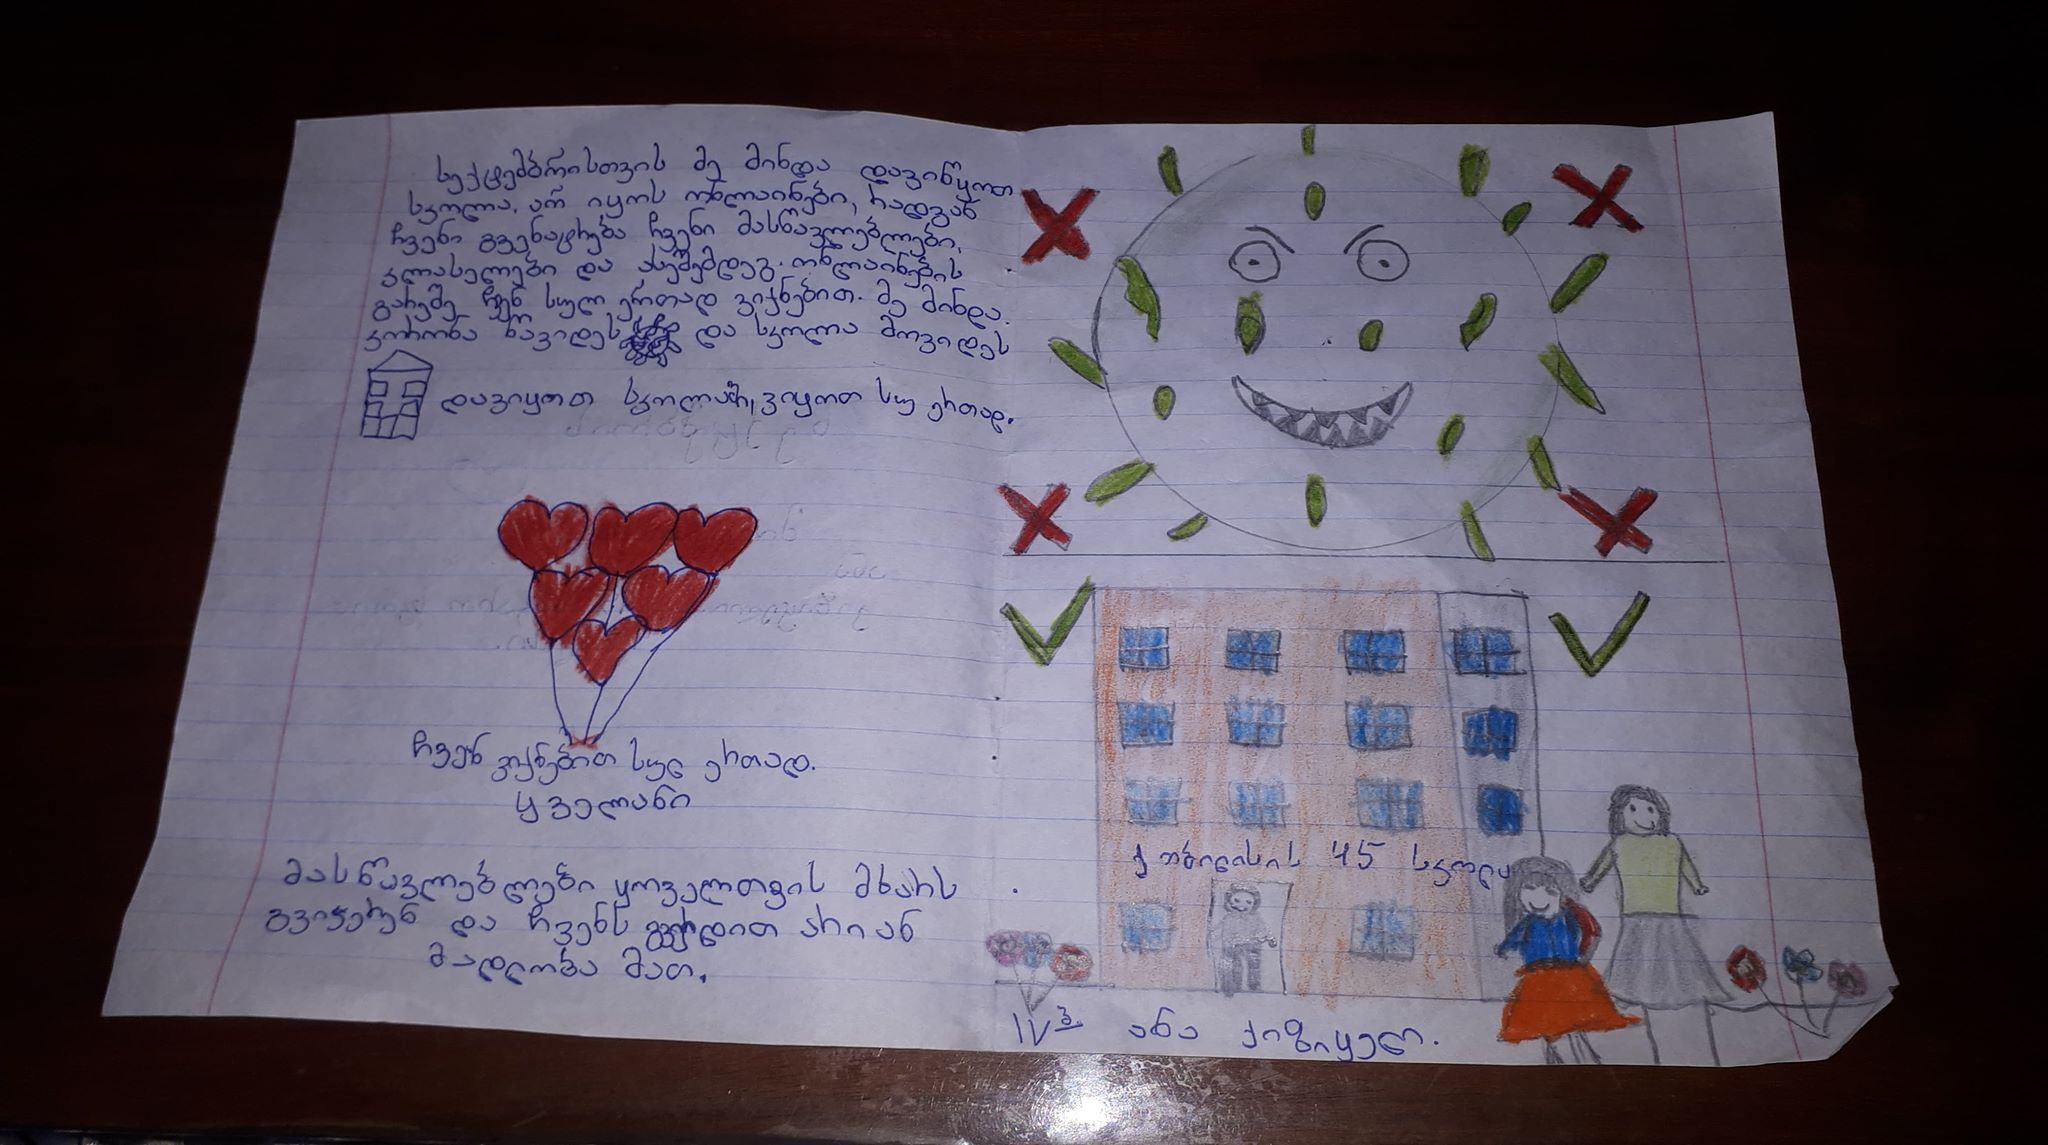 სექტემბრისთვის მე მინდა დავიწყოთ
სკოლა. არ იყოს ონლაინები, რადგან
ჩვენი გვენატრება ჩვენი მასწავლებლები,
კლასელები და ასეშემდეგ. ონლაინების
გარეშე ჩვენ სულ ერთად ვიქნებით. მე მინდა.
კორონა წავიდეს და სკოლა მოვიდეს
დავიყოთ სკოლაში, ვიყოთ სუ ერთად.
ჩვენ ვიქნებით სულ ერთად.
ყველანი
მასწავლებლები ყოველთვის მხარს
გვიჭერენ და ჩვენს გვერდით არიან
მადლობა მათ.
ქ თბილისის 45 სკოლა
IVბ. ანა ქიზიყელ.